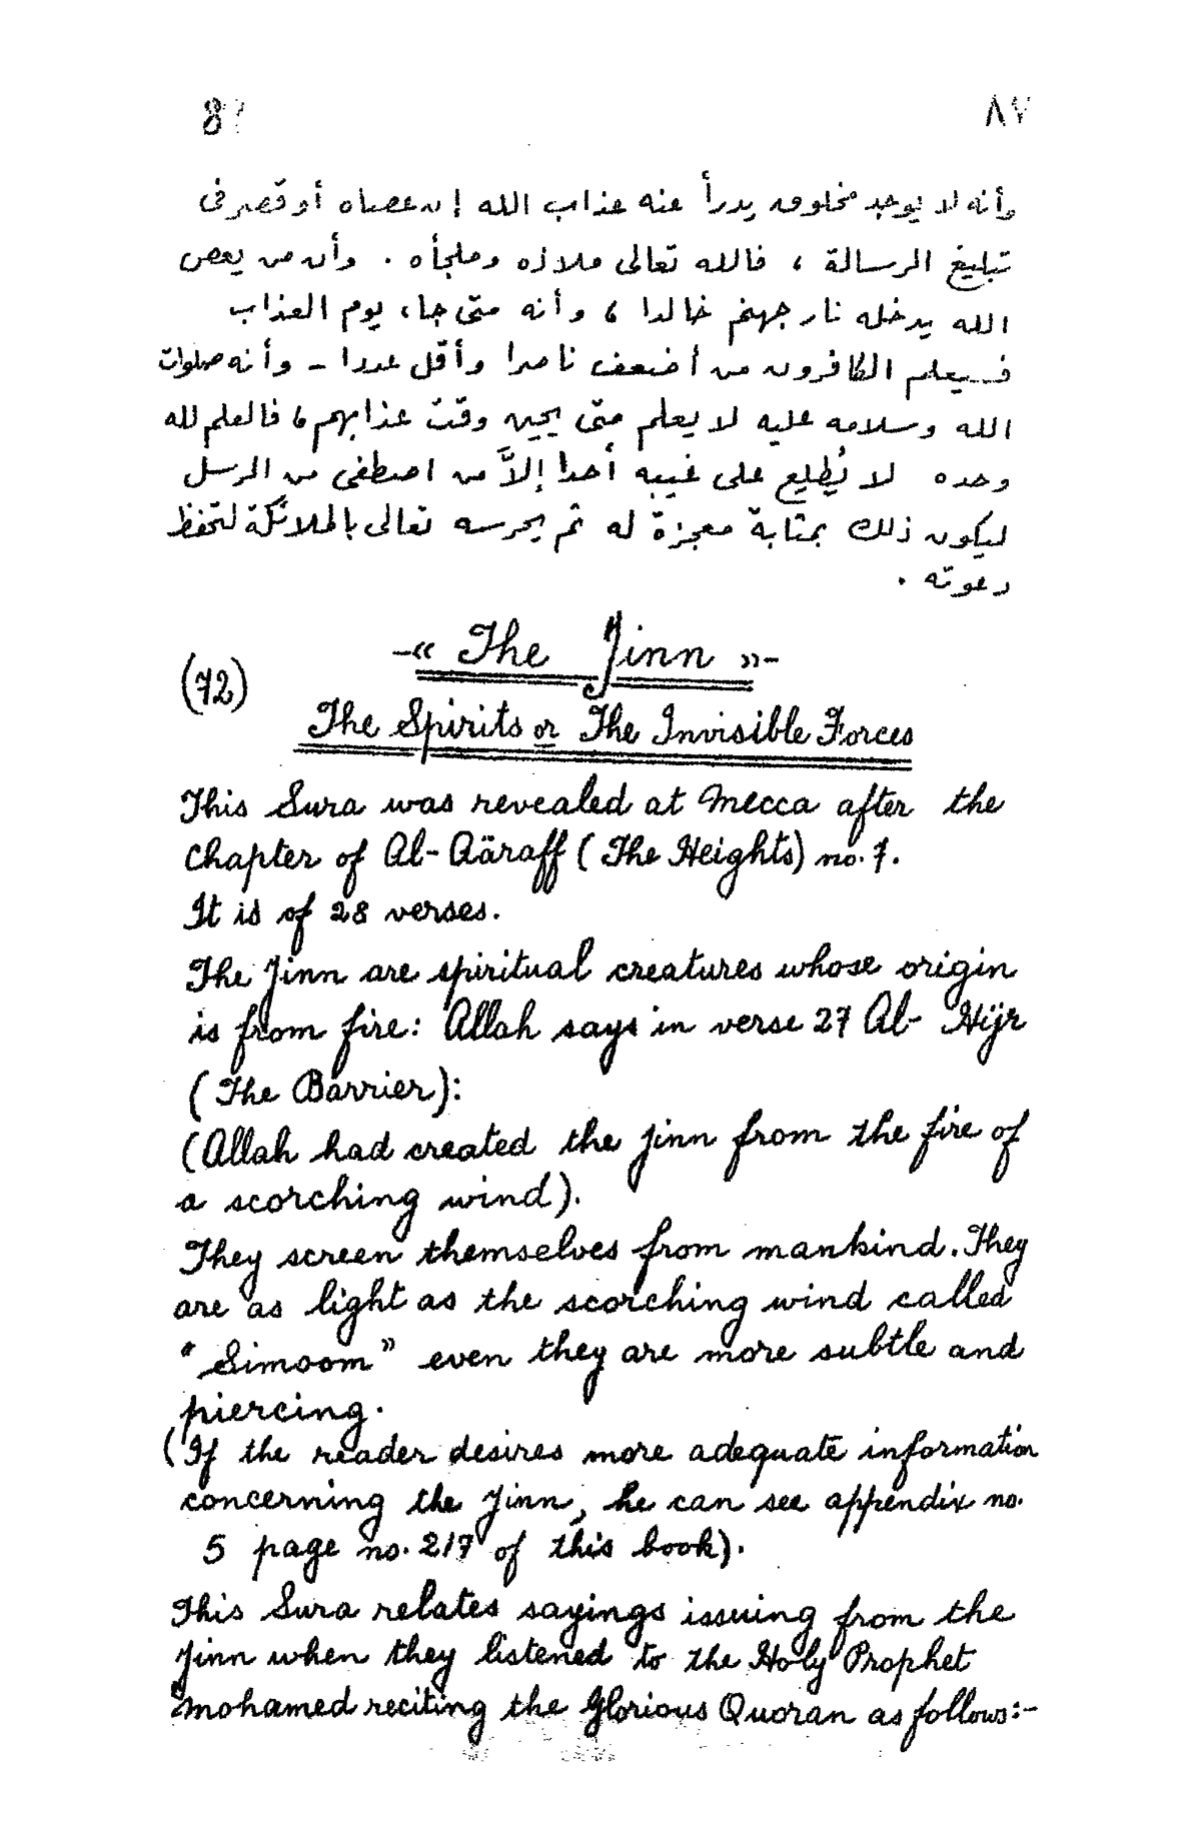 87 ٨٧
وأنه لا يوجد مخلوق يدرأ عنه عذاب الله إن عصاه أو قصر فى
تبليغ الرسالة ، فالله تعالى ملاذه وملجأه . وأن من يعص
الله يدخله نار جهنم خالدا ، وأنه متى جاء يوم العذاب
فسيعلم الكافرون من أضعف ناصرا وأقل عددا – وأنه صلوات
الله وسلامه عليه لا يعلم متى يحين وقت عذابهم ، فالعلم لله
وحده لا يُطلِع على غيبه أحدا إلاَّ من اصطفى من الرسل
ليكون ذلك بمثابة معجزة له ثم يحرسه تعالى بالملائكة لتحفظ
دعوته .
-« The Jinn »-
(72)
The Spirits or The Invisible Forces
This Sura was revealed at Mecca after the
chapter of Al-Aäraff (The Heights) no. 7.
It is of 28 verses.
The Jinn are spiritual creatures whose origin
is from fire: Allah says in verse 27 Al- Hijr
(The Barrier):
(Allah had created the jinn from the fire of
a scorching wind).
They screen themselves from mankind. They
are as light as the scorching wind called
"Simoom" even they are more subtle and
piercing.
(If the reader desires more adequate information
concerning the Jinn, he can see appendix no.
5 page no. 217 of this book).
This Sura relates sayings issuing from the
Jinn when they listened to the Holy Prophet
Mohamed reciting the Glorious Quoran as follows:-